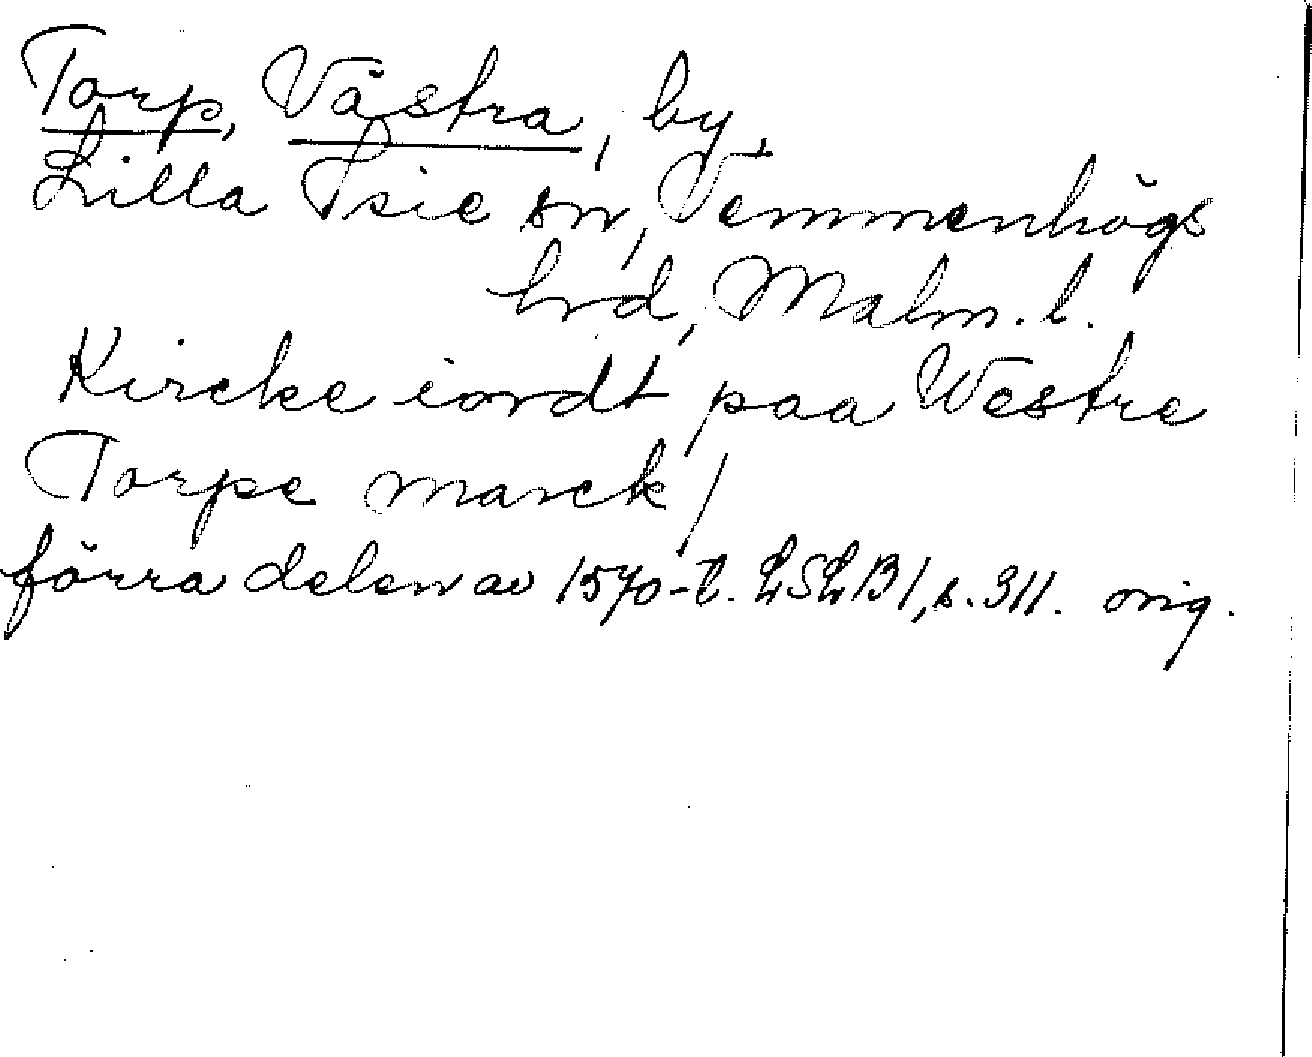 Torp, Västra, by,
Lilla Isie sn, Vemmenhögs
hrd, Malm. l.
Kircke iordt paa Westre
Torpe marck /
förra delen av 1570-t. LSLB1, s. 311. orig.